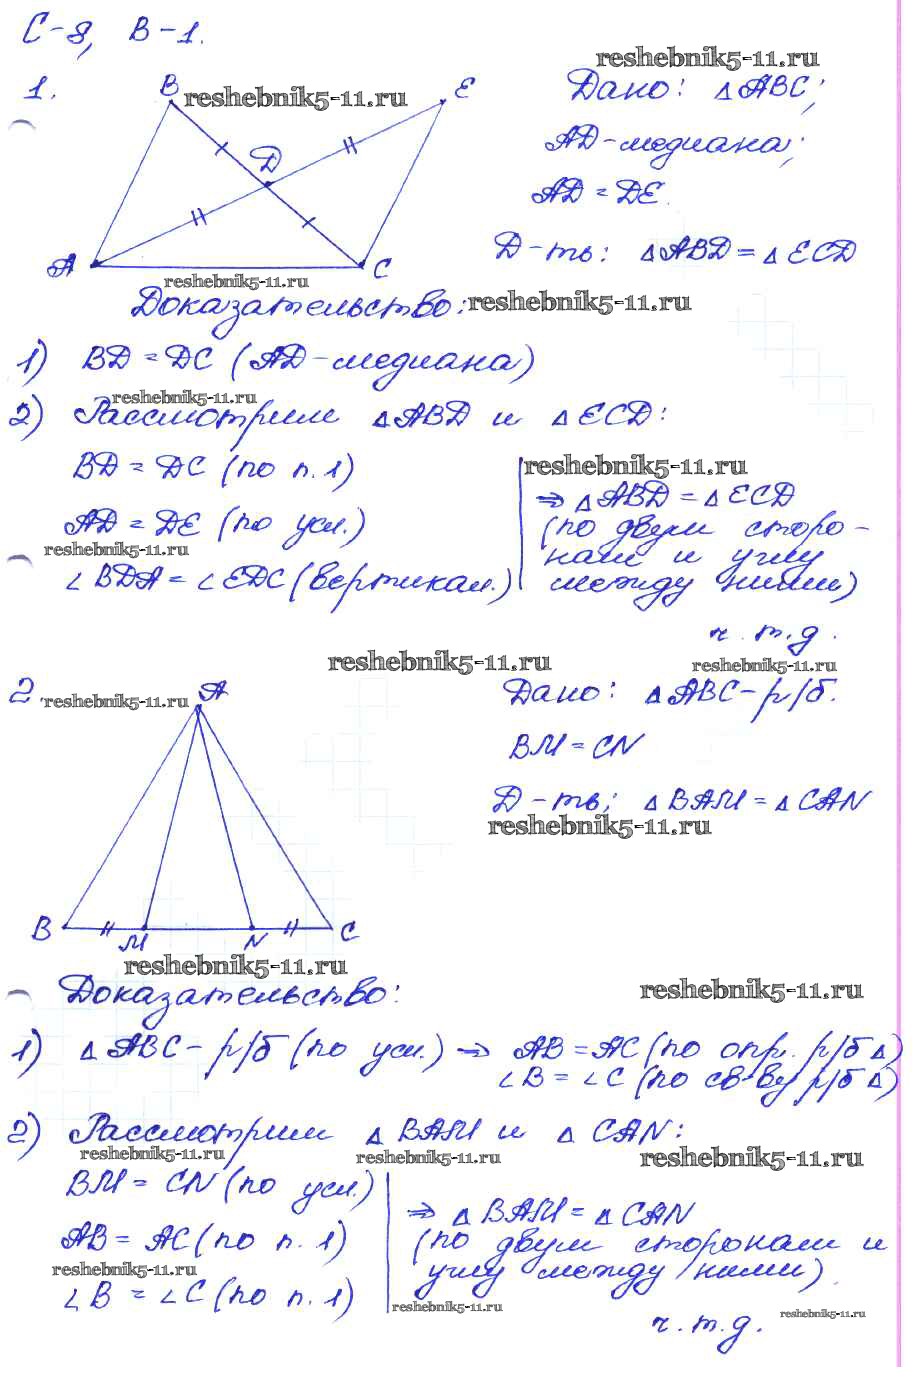 С-8, В-1.
reshebnik5-11.ru
1.
B
reshebnik5-11.ru
E
Дано: △ABC;
D
AD-медиана;
AD = DE.
A
C
Д-ть: △ABD = △ECD
reshebnik5-11.ru
Доказательство:
reshebnik5-11.ru
1) BD = DC (AD-медиана)
reshebnik5-11.ru
2) Рассмотрим △ABD и △ECD:
BD = DC (по п. 1)
reshebnik5-11.ru
⇒ △ABD = △ECD
AD = DE (по усл.)
(по двум сторо-
reshebnik5-11.ru
нам и углу
∠BDA = ∠EDC (вертикал.)
между ними)
ч.т.д.
reshebnik5-11.ru
reshebnik5-11.ru
2.
reshebnik5-11.ru
A
Дано: △ABC-р/б.
BM = CN
Д-ть: △BAM = △CAN
reshebnik5-11.ru
B
M
N
C
reshebnik5-11.ru
Доказательство:
reshebnik5-11.ru
1) △ABC-р/б (по усл.) ⇒ AB = AC (по опр. р/б △)
∠B = ∠C (по св-ву р/б △)
2) Рассмотрим △BAM и △CAN:
reshebnik5-11.ru
reshebnik5-11.ru
reshebnik5-11.ru
BM = CN (по усл.)
⇒ △BAM = △CAN
AB = AC (по п. 1)
(по двум сторонам и
reshebnik5-11.ru
углу между ними)
∠B = ∠C (по п. 1)
reshebnik5-11.ru
ч.т.д.
reshebnik5-11.ru